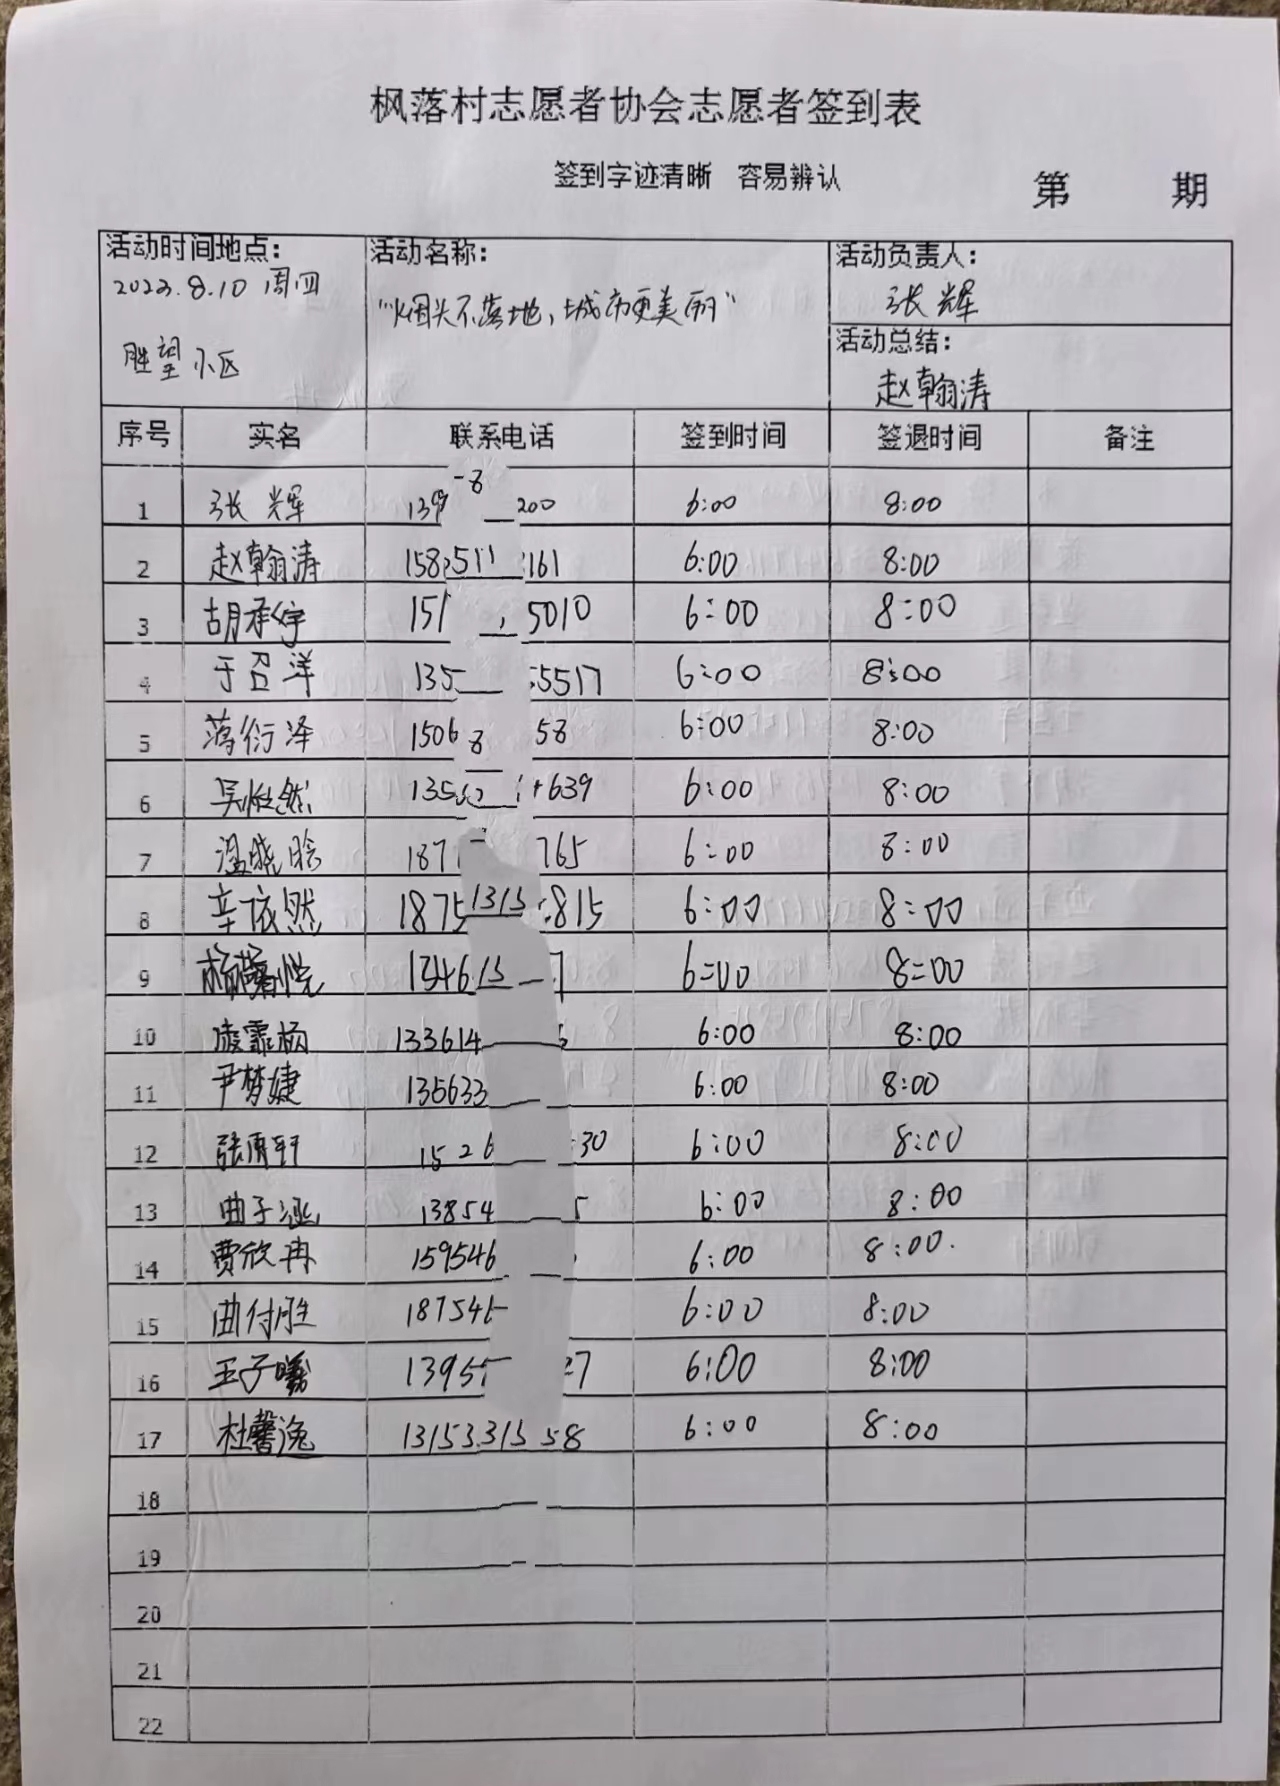 枫落村志愿者协会志愿者签到表
签到字迹清晰 容易辨认
第 期
活动时间地点: 活动名称: 活动负责人:
2023.8.10 周四 "烟头不落地,城市更美丽" 张辉
胜望小区 活动总结:
赵翰涛
序号 实名 联系电话 签到时间 签退时间 备注
1 张辉 139 200 6:00 8:00
2 赵翰涛 158 511 161 6:00 8:00
3 胡承宇 151 5010 6:00 8:00
4 于召洋 135 5517 6:00 8:00
5 衍泽 1506 8 58 6:00 8:00
6 吴 然 135 639 6:00 8:00
7 温晓晗 187 765 6:00 8:00
8 辛依然 1875 1315 815 6:00 8:00
9 杨馨悦 1346 15 7 6:00 8:00
10 凌霏杨 133614 6:00 8:00
11 尹梦婕 135633 6:00 8:00
12 张雨轩 1526 30 6:00 8:00
13 曲子涵 13854 5 6:00 8:00
14 费欣冉 159546 6:00 8:00.
15 曲付胜 18754 6:00 8:00
16 王子曦 1395 27 6:00 8:00
17 杜馨逸 13153 315 58 6:00 8:00
18
19
20
21
22